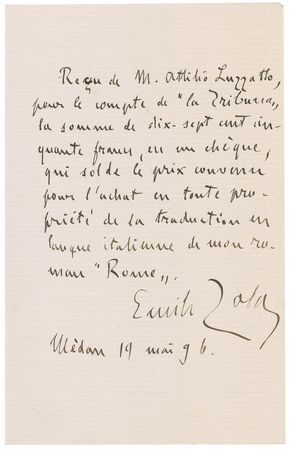 Reçu de M. Attilio Luzzatto,
pour le compte de "la Tribuna",
la somme de dix-sept cent cin-
quante francs, en un chèque,
qui solde le prix convenu
pour l'achat en toute pro-
priété de la traduction en
langue italienne de mon ro-
man "Rome".
Emile Zola
Médan 19 mai 96.